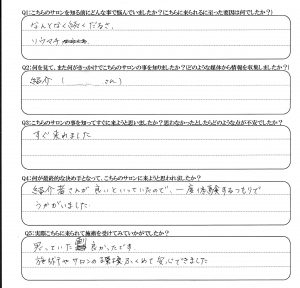 Q1:こちらのサロンを知る前にどんな事で悩んでいましたか?こちらに来られるに至った要因は何でしたか?
なんとなく続くだるさ、
リウマチ
Q2:何を見て、また何がきっかけでこちらのサロンの事を知りましたか?(どのような媒体から情報を収集しましたか?)
紹介 ( さん)
Q3:こちらのサロンの事を知ってすぐに来ようと思いましたか?思わなかったとしたらどのような点が不安でしたか?
すぐ来ました
Q4:何が最終的な決め手となって、こちらのサロンに来ようと思われましたか?
紹介者さんが良いといっていたので、一度体験するつもりで
うかがいました
Q5:実際こちらに来られて施術を受けてみていかがでしたか?
思っていた 良かったです
施術やサロンの環境ふくめて安心できました